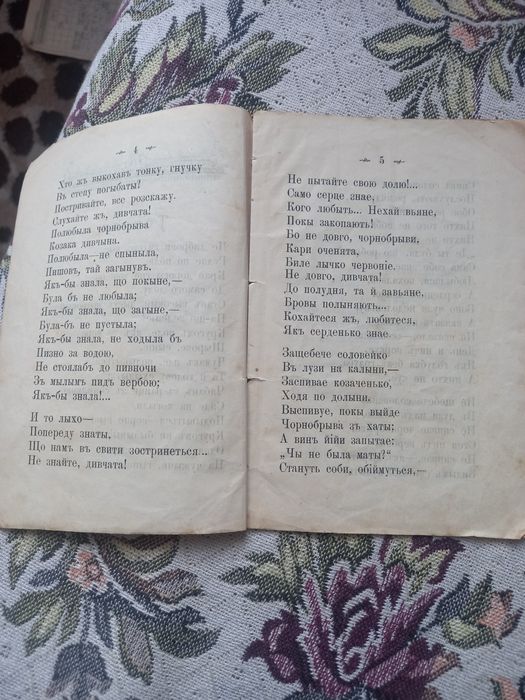 4
Хто жъ выкохавъ тонку, гнучку
Въ степу погыбаты!
Постривайте, все розскажу.
Слухайте жъ, дивчата!
Полюбыла чорнобрыва
Козака дивчына.
Полюбыла, не спыныла,
Пишовъ, тай загынувъ.
Якъ-бы знала, що покыне,—
Була бъ не любыла;
Якъ-бы знала, що загыне,—
Була-бъ не пустыла;
Якъ-бы знала, не ходыла бъ
Пизно за водою,
Не стоялабъ до пивночи
Зъ мылымъ пидъ вербою;
Якъ-бы знала!...
И то лыхо—
Попереду знаты,
Що намъ въ свити зостринеться...
Не знайте, дивчата!
5
Не пытайте свою долю!...
Само серце знае,
Кого любыть... Нехай вьяне,
Покы закопають!
Бо не довго, чорнобрыви,
Кари оченята,
Биле лычко червоніе.
Не довго, дивчата!
До полудня, та й завьяне,
Бровы полыняють...
Кохайтеся жъ, любитеся,
Якъ серденько знае.
Защебече соловейко
Въ лузи на калыни,—
Заспивае козаченко,
Ходя по долыни.
Выспивуе, покы выйде
Чорнобрыва зъ хаты;
А винъ йійи запытае:
„Чы не была маты?"
Стануть соби, обіймуться,—